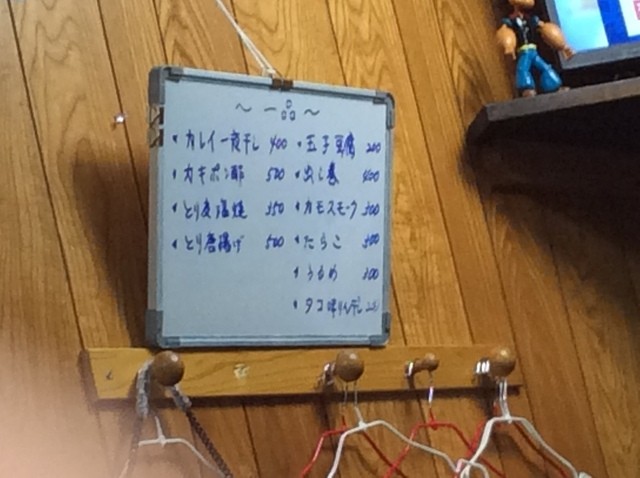 ～一品～
・カレイ一夜干し 400
・カキポン酢 500
・とり皮塩焼 350
・とり唐揚げ 500
・玉子豆腐 200
・出し巻 400
・カモスモーク 300
・たらこ 300
・うるめ 300
・タコ